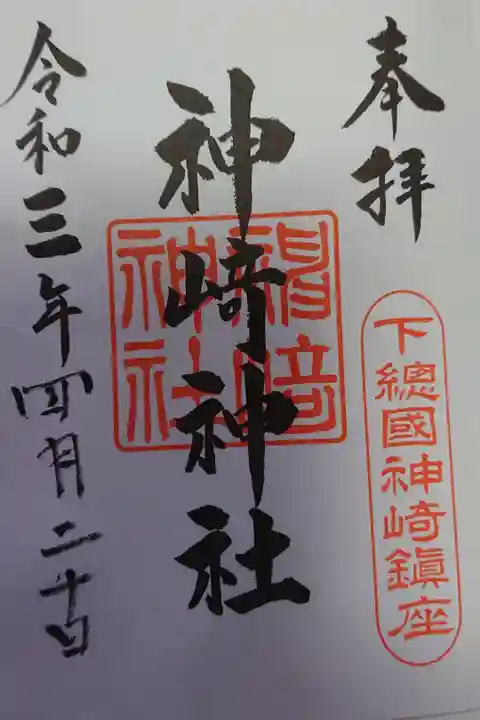 奉拝
下總國神崎鎭座
神﨑神社
神﨑
神社
令和三年四月二十日